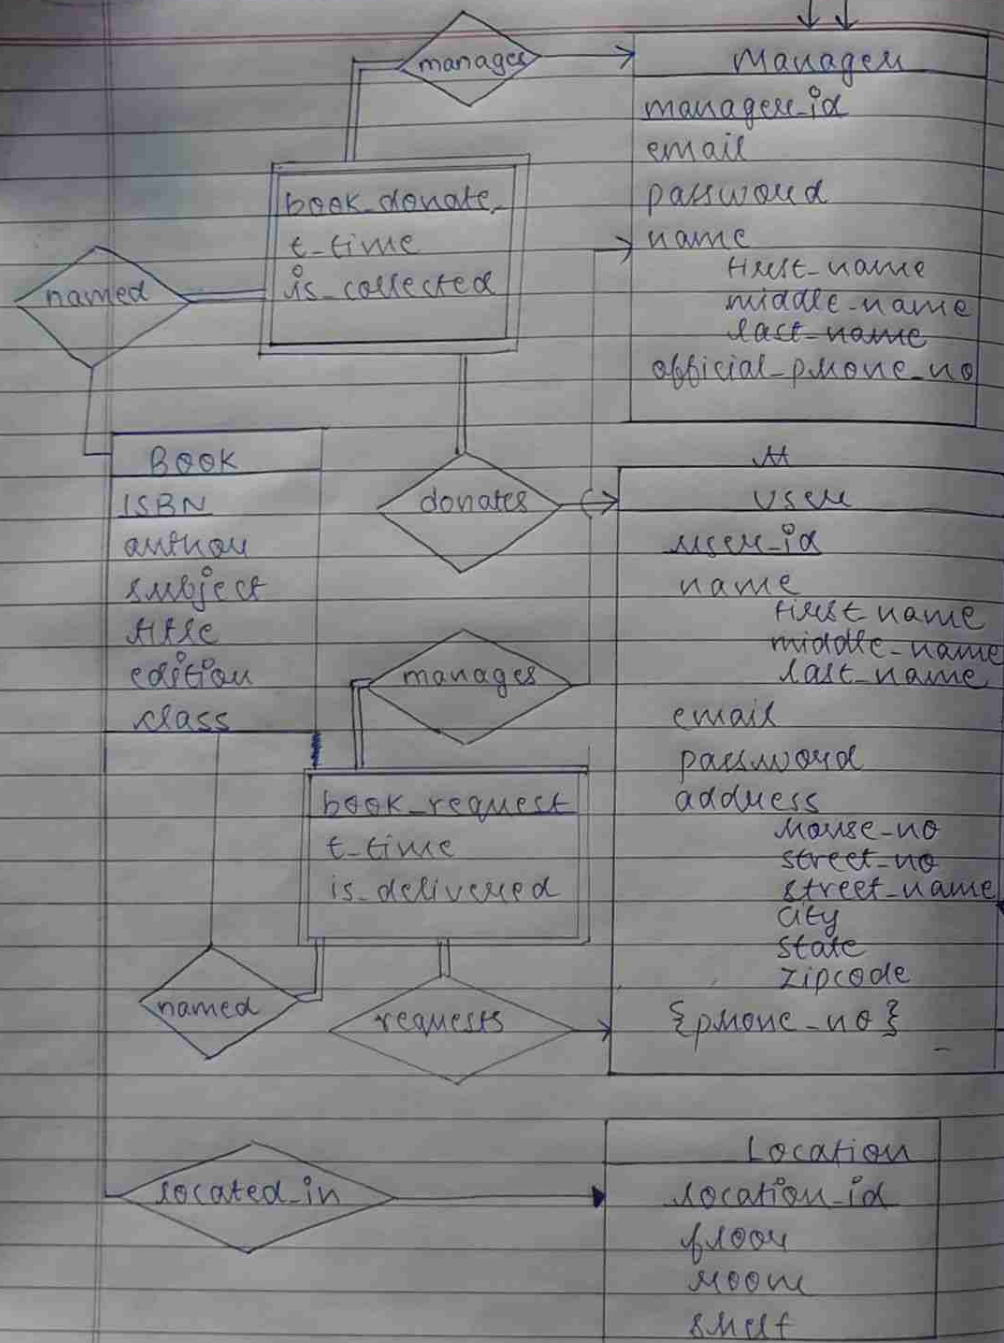 manages
Manager
manager_id
email
password
name
first_name
middle_name
last_name
official_phone_no
book_donate
t_time
is_collected
named
BOOK
ISBN
author
subject
title
edition
class
donates
User
user_id
name
first_name
middle_name
last_name
email
password
address
house_no
street_no
street_name
city
state
zipcode
{phone_no}
manages
book_request
t_time
is_delivered
named
requests
located_in
Location
location_id
floor
room
shelf